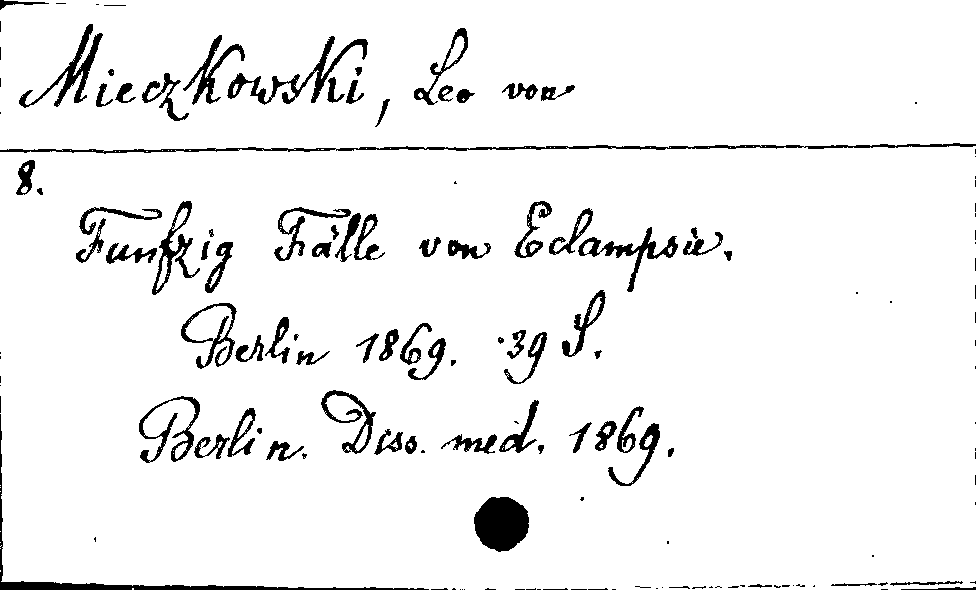 Mieczkowski, Leo von
8.
Funfzig Fälle von Eclampsie.
Berlin 1869. 39 S.
Berlin. Diss. med. 1869.